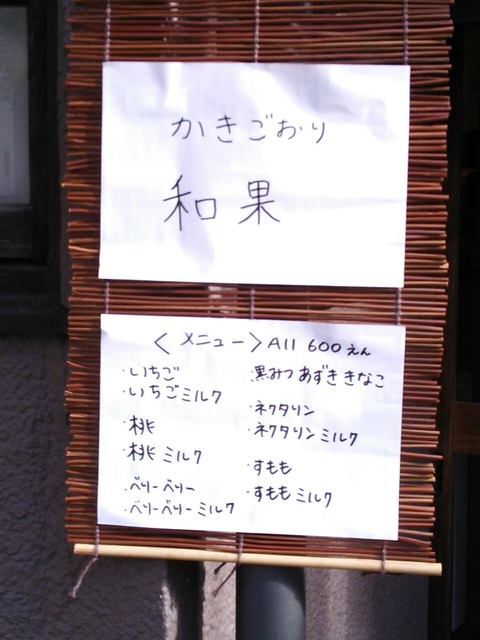 かきごおり
和果
〈メニュー〉All 600えん
・いちご
・いちごミルク
・桃
・桃ミルク
・ベリーベリー
・ベリーベリーミルク
・黒みつあずききなこ
・ネクタリン
・ネクタリンミルク
・すもも
・すももミルク